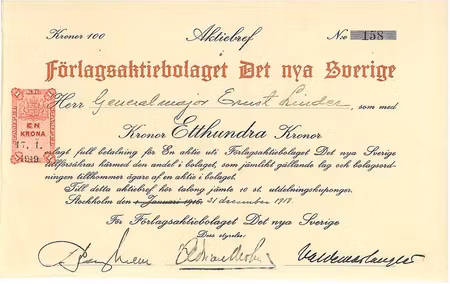 Kronor 100 Aktiebref No 158
i
Förlagsaktiebolaget Det nya Sverige
Herr Generalmajor Ernst Linder, som med
Kronor Etthundra Kronor
EN
KRONA
17. 1.
1919
erlagt full betalning för En aktie uti Förlagsaktiebolaget Det nya Sverige
tillförsäkras härmed den andel i bolaget, som jämlikt gällande lag och bolagsord-
ningen tillkommer ägare af en aktie i bolaget.
Till detta aktiebref hör talong jämte 10 st. utdelningskuponger.
Stockholm den 1 Januari 1916, 31 december 1918.
För Förlagsaktiebolaget Det nya Sverige
Dess styrelse: